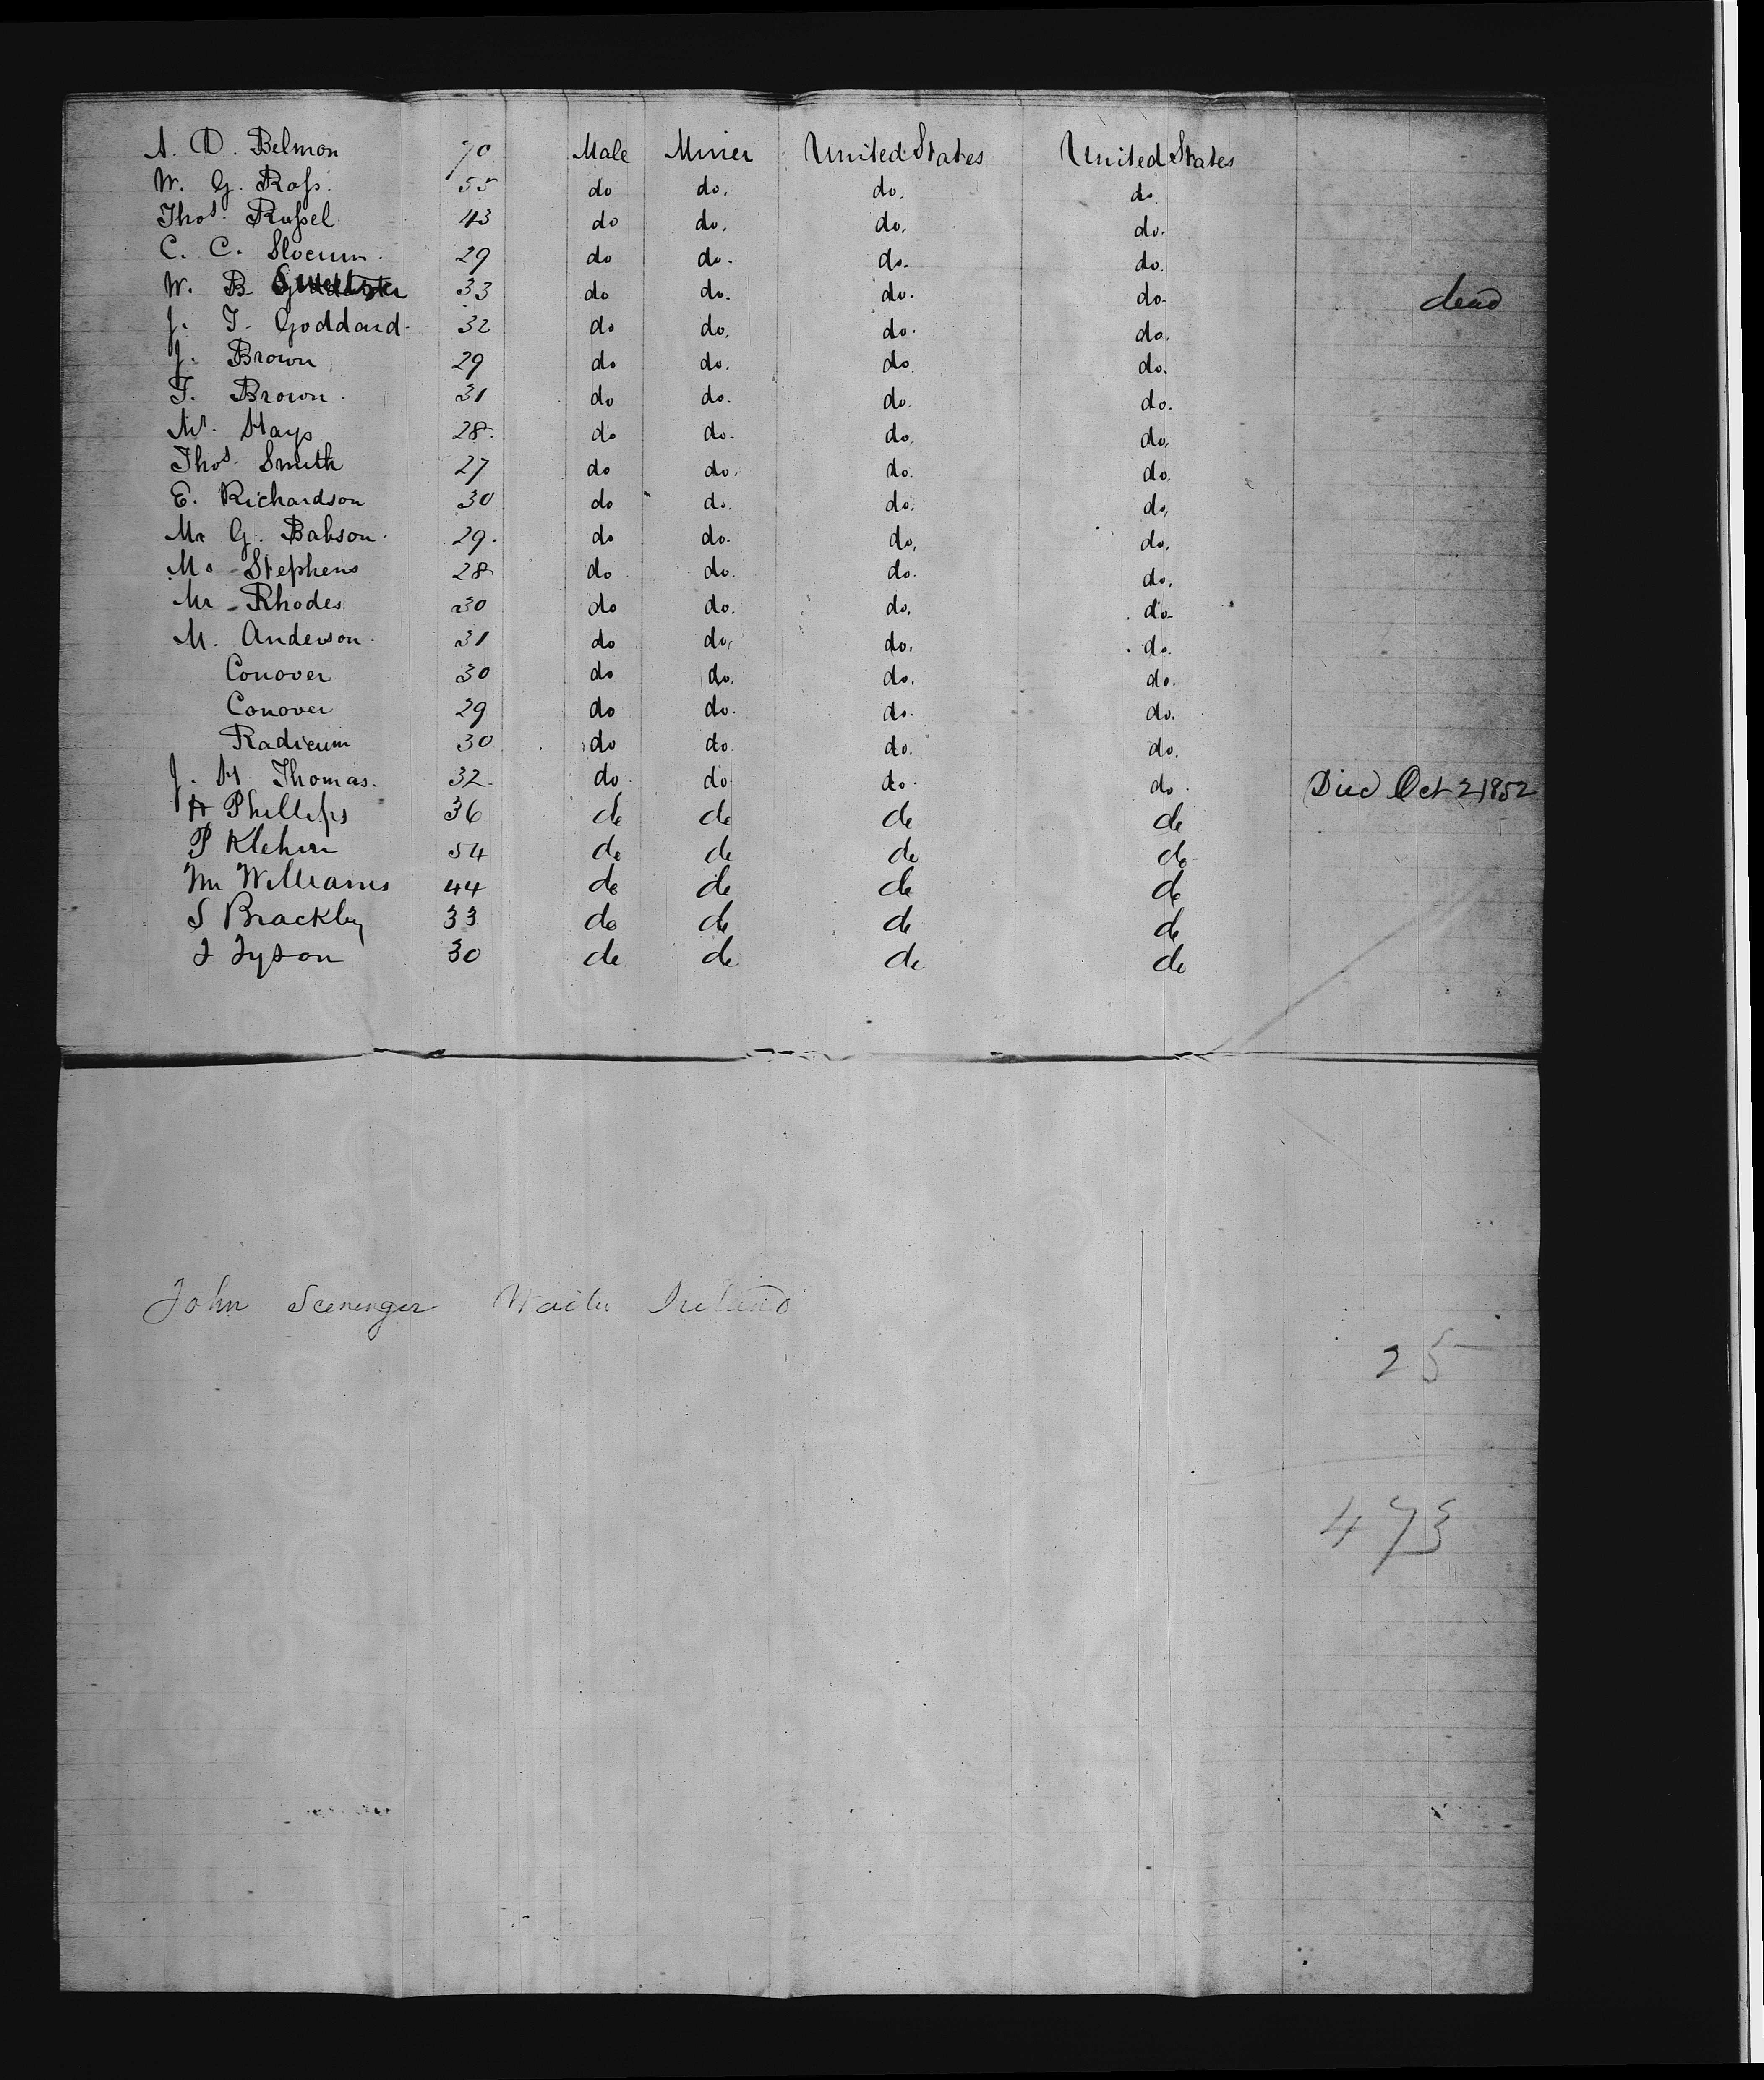 A. D. Belmon 70 Male Miner United States United States
W. G. Ross. 55 do do. do. do.
Thos. Russel. 43 do do. do. do.
C. C. Slocum. 29 do do. do. do.
W. B. 33 do do. do. do. dead
J. T. Goddard. 32 do do. do. do.
J. Brown 29 do do. do. do.
T. Brown. 31 do do. do. do.
Mr. Hays 28. do do. do. do.
Thos. Smith 27 do do. do. do.
E. Richardson 30 do do. do. do.
Mr G. Babson. 29. do do. do. do.
Mr - Stephens 28 do do. do. do.
Mr - Rhodes 30 do do. do. do.
M. Anderson. 31 do do. do. do.
Conover 30 do do. do. do.
Conover 29 do do. do. do.
Radicum 30 do do. do. do.
J. H. Thomas. 32. do. do. do. do. Died Oct 2 1852
A Phillips 36 do do do do
P Klehm 54 do do do do
Wm Williams 44 do do do do
S Brackley 33 do do do do
J Tyson 30 do do do do
John Waiter Ireland
25
473